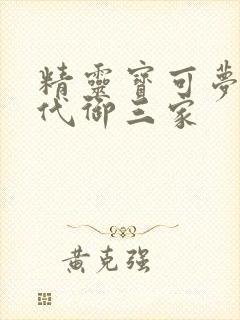 精靈寶可夢
代御三家
黃克強